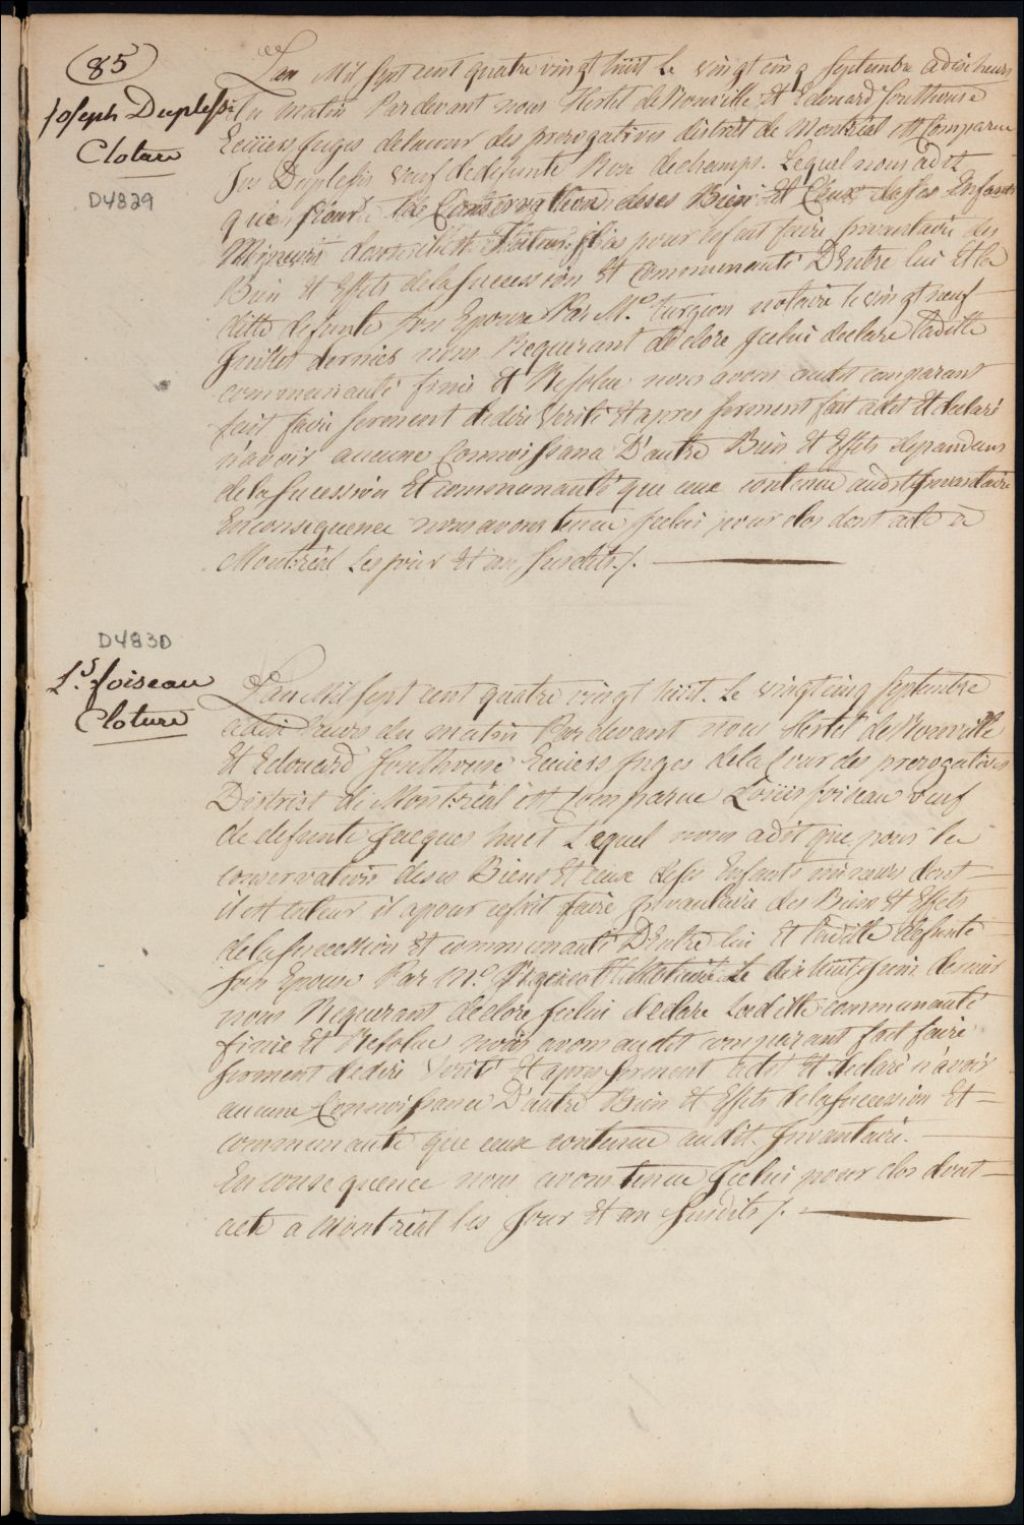 85
Joseph Duplessi
Cloture
D4829
Lan Mil Sept cent quatre vingt huit Le vingt cinq Septembre a dix heurs
du matin Pardevant nous Hertel de Rouville Et Edouard Southouse
Ecüiers Juges delacour des prerogatives district de Montréal est Comparue
Jos Duplessis veuf dedefunte Rose dechamps. Lequel nous adit
que pour la Conservation deses Bien Et Ceux desses Enfants
Mineurs dont il est Tuteur il a pour lefait faire Inventaire des
Bien Et Effets delaSuccession Et Communauté D'Entre lui Et la
ditte defunte Son Epouse Par Mc. Turgeon notaire le vingt neuf
Juillet dernier nous Requerant de clore Icelui declare laditte
communauté finie Et Resolue nous avons audit comparant
fait faire Serment dedire Verité Et apres Serment fait adit Et declaré
n'avoir aucune Connoissance D'autre Bien Et Effets dependans
delaSucession Et communauté que ceux contenue audit Inventaire
En consequence nous avons tenue Icelui pour clos dont acte a
Montréal Les jour Et an Susdits ./.
D4830
Ls. Loiseau
Cloture
Lan Mil Sept cent quatre vingt huit. Le vingt cinq Septembre
a dix heurs du matin Pardevant nous Hertel de Rouville
Et Edouard Southouse Ecuiers Juges dela Cour des prerogatives
District de Montréal est Comparue Loüis Loiseau veuf
de defunte Jacques huet Lequel nous adit que pour la
conservation deses Biens Et ceux deses Enfants mineurs dont
il est tuteur il a pour cefait faire Inventaire des Biens Et Effets
delaSuccession Et communauté D'Entre lui Et laditte defunte
Son Epouse Par Mc. Notaire Le dix huit Juin dernier
nous Requerant declore Icelui declare Laditte communauté
finie Et Resolue nous avons audit comparant fait faire
Serment dedire Verité Et apres Serment adit Et declaré n'avoir
aucune Connoissance D'autre Bien Et Effets delaSucession Et
communauté que ceux contenue audit Inventaire.
En consequence nous avons tenue Icelui pour clos dont
acte a Montréal les Jour Et an Susdits ./.